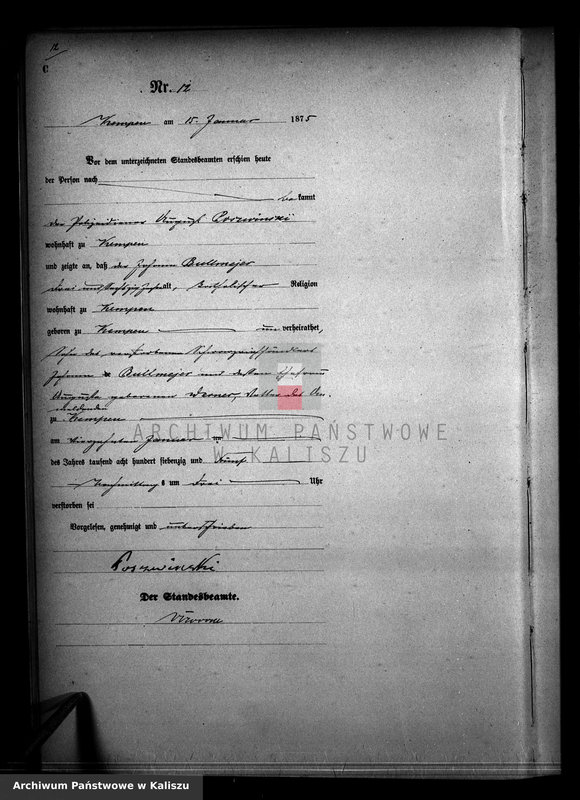 12
C
Nr. 12
Kempen am 15. Januar 1875
Vor dem unterzeichneten Standesbeamten erschien heute
der Person nach
bekannt
der Polizeidiener August
wohnhaft zu Kempen
und zeigte an, daß der Johann Bullmejer
drei und alt, katholischer Religion
wohnhaft zu Kempen
geboren zu Kempen unverheirathet,
Sohn des verstorbenen
Johann Bullmejer und dessen Ehefrau
Auguste geborenen des An-
meldenden
zu Kempen
am vierzehnten Januar
des Jahres tausend acht hundert siebenzig und fünf
Nachmittags um drei Uhr
verstorben sei
Vorgelesen, genehmigt und unterschrieben
Der Standesbeamte.
ARCHIWUM PAŃSTWOWE
W KALISZU
Archiwum Państwowe w Kaliszu